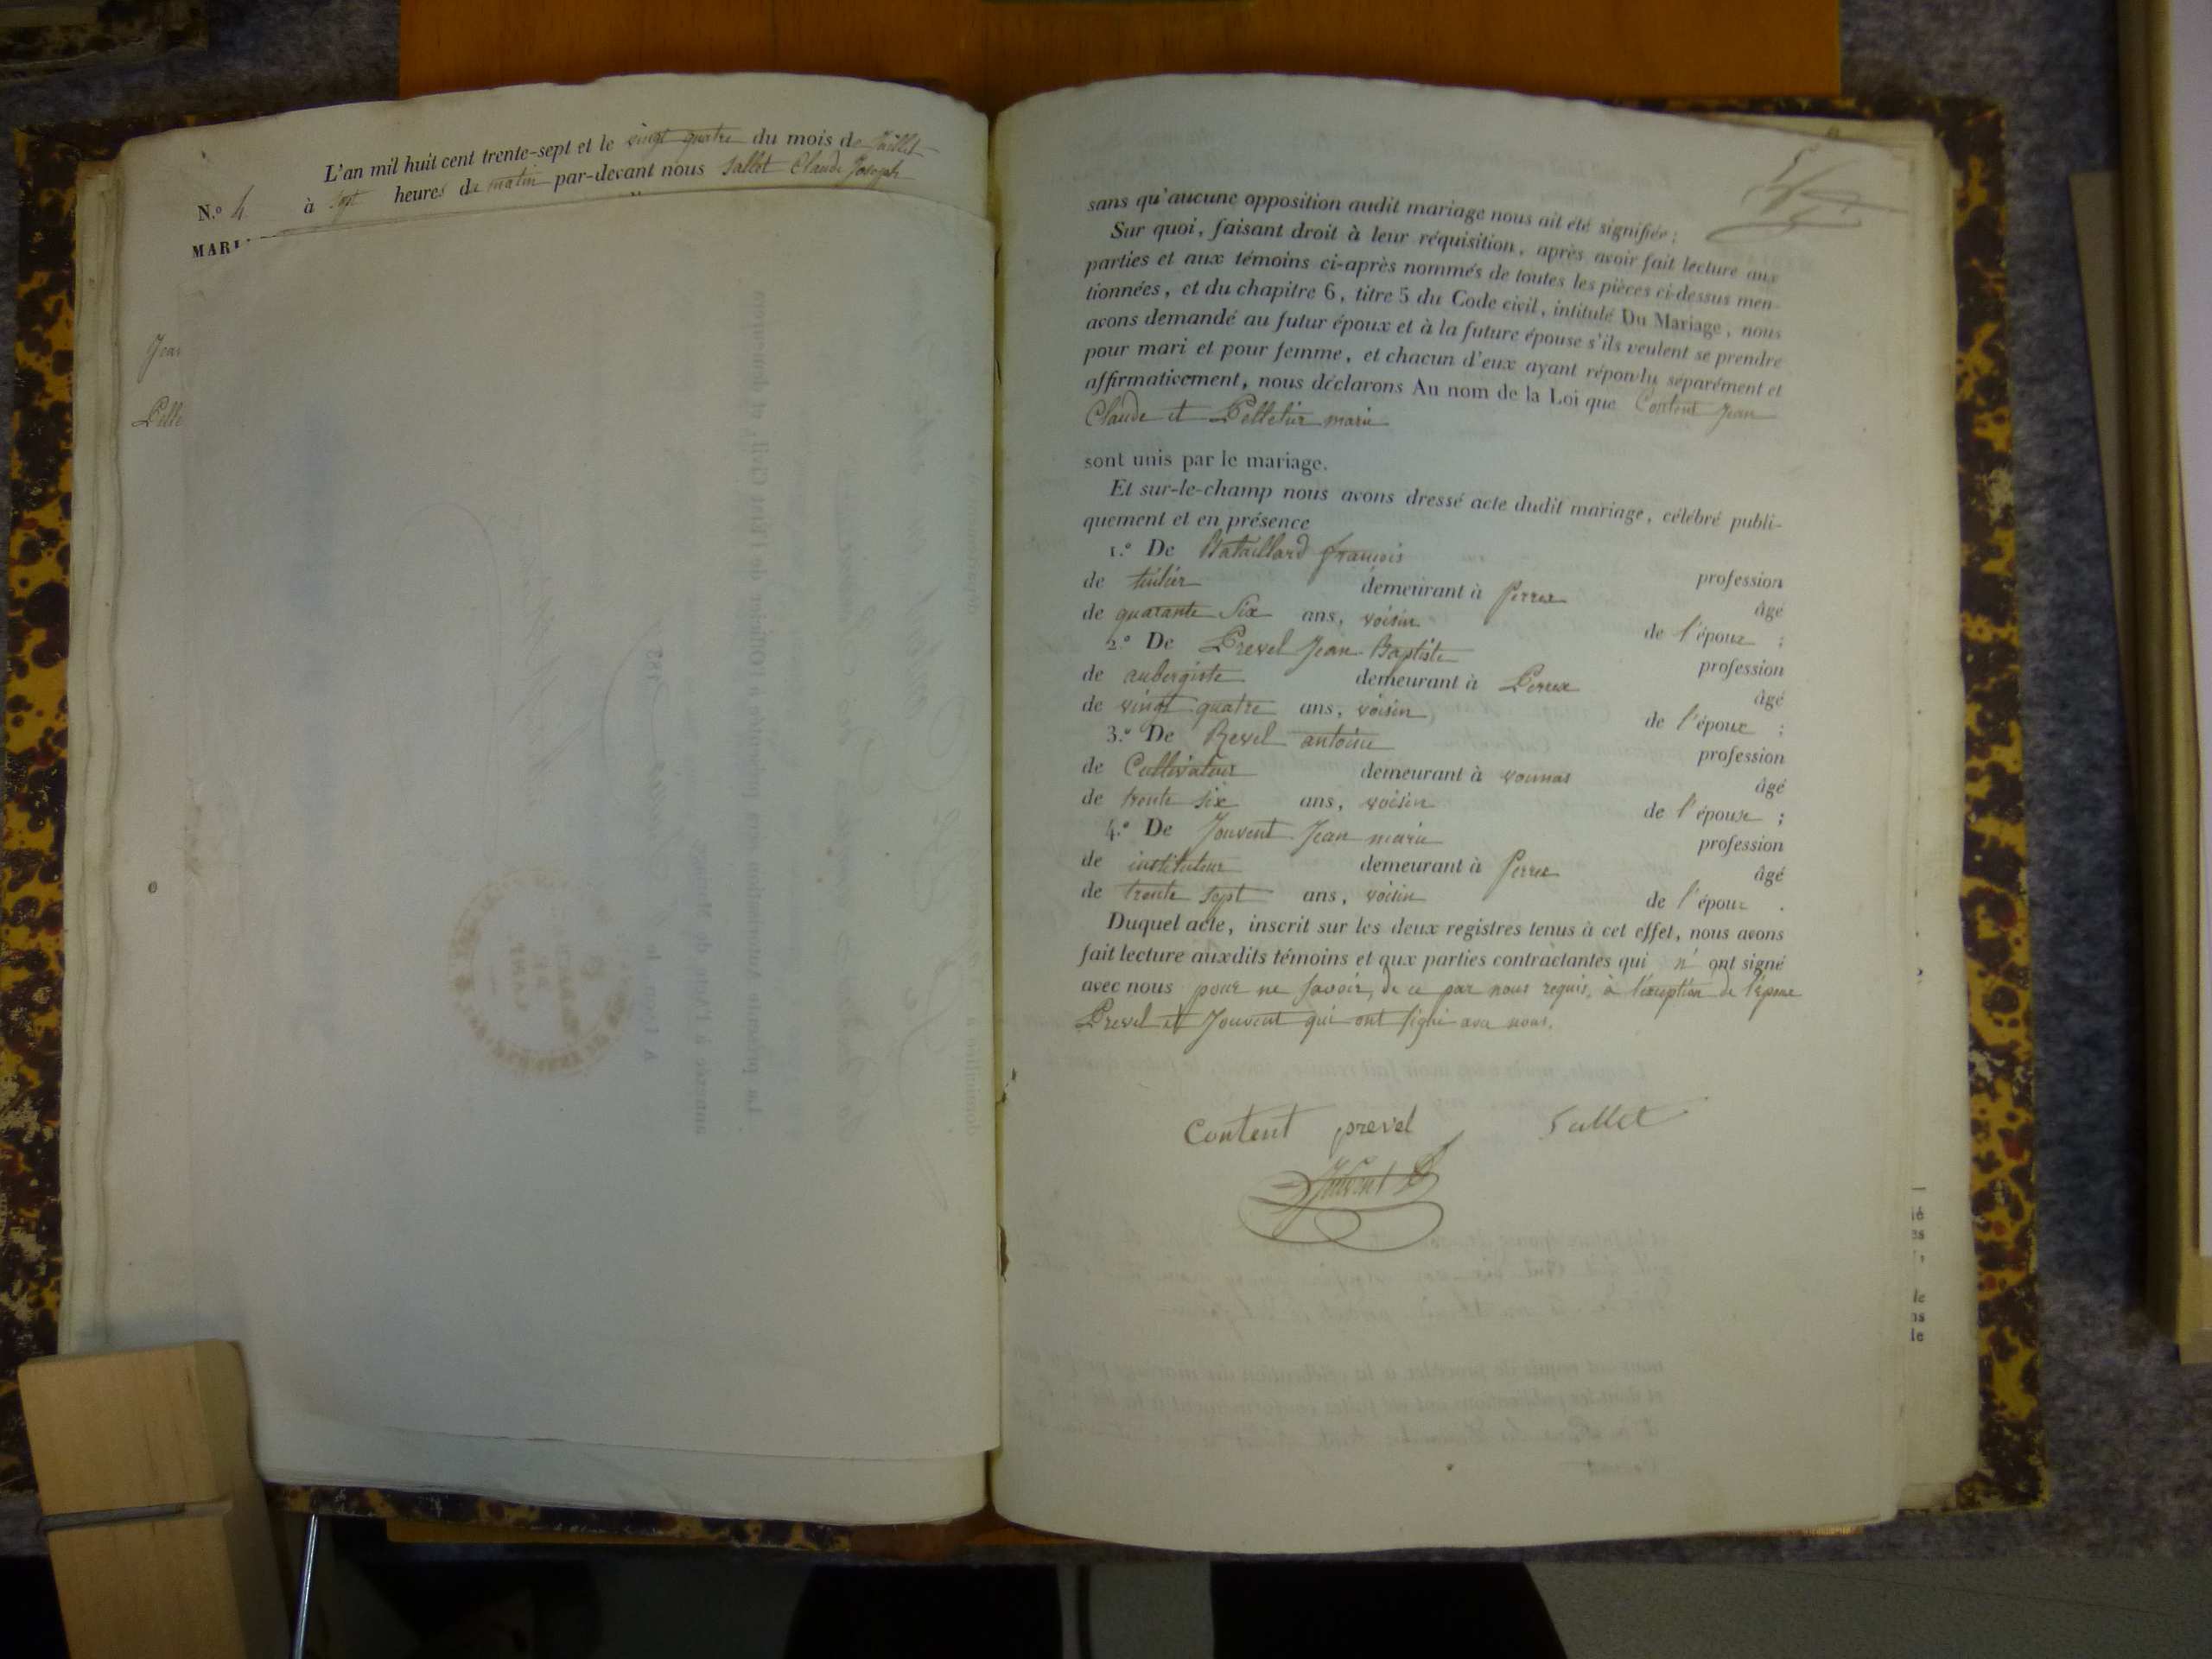 L'an mil huit cent trente-sept et le vingt quatre du mois de Juillet
N.º 4. à sept heures du matin par-devant nous Sallet Claude Joseph
MARI
Jean
Pelle
sans qu'aucune opposition audit mariage nous ait été signifiée;
Sur quoi, faisant droit à leur réquisition, après avoir fait lecture aux
parties et aux témoins ci-après nommés de toutes les pièces ci-dessus men-
tionnées, et du chapitre 6, titre 5 du Code civil, intitulé Du Mariage, nous
avons demandé au futur époux et à la future épouse s'ils veulent se prendre
pour mari et pour femme, et chacun d'eux ayant répondu séparément et
affirmativement, nous déclarons Au nom de la Loi que Content Jean
Claude et Pelletier marie
sont unis par le mariage.
Et sur-le-champ nous avons dressé acte dudit mariage, célébré publi-
quement et en présence
1.º De Bataillard françois profession
de tuilier demeurant à Perreux âgé
de quarante Six ans, voisin de l'époux ;
2.º De Prevel Jean Baptiste profession
de aubergiste demeurant à Perreux âgé
de vingt quatre ans, voisin de l'époux ;
3.º De Revel antoine profession
de Cultivateur demeurant à vounas âgé
de trente six ans, voisin de l'épouse ;
4.º De Jouvent Jean marie profession
de instituteur demeurant à Perreux âgé
de trente sept ans, voisin de l'époux .
Duquel acte, inscrit sur les deux registres tenus à cet effet, nous avons
fait lecture auxdits témoins et aux parties contractantes qui n' ont signé
avec nous pour ne savoir, de ce par nous requis, à l'exception de l'époux
Prevel et Jouvent qui ont signé avec nous.
Content prevel Sallet
Jouvent